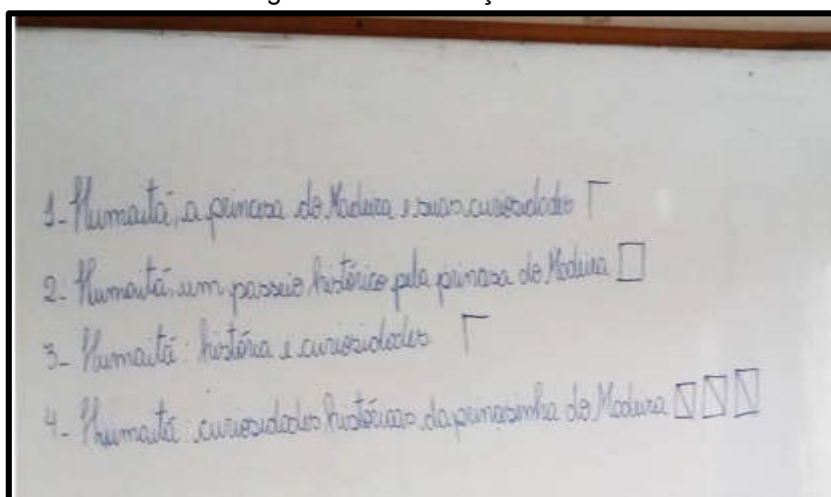 1- Humaitá, a princesa do Madeira e suas curiosidades
2- Humaitá, um passeio histórico pela princesa do Madeira
3- Humaitá: história e curiosidades
4- Humaitá: curiosidades históricas da princesinha do Madeira